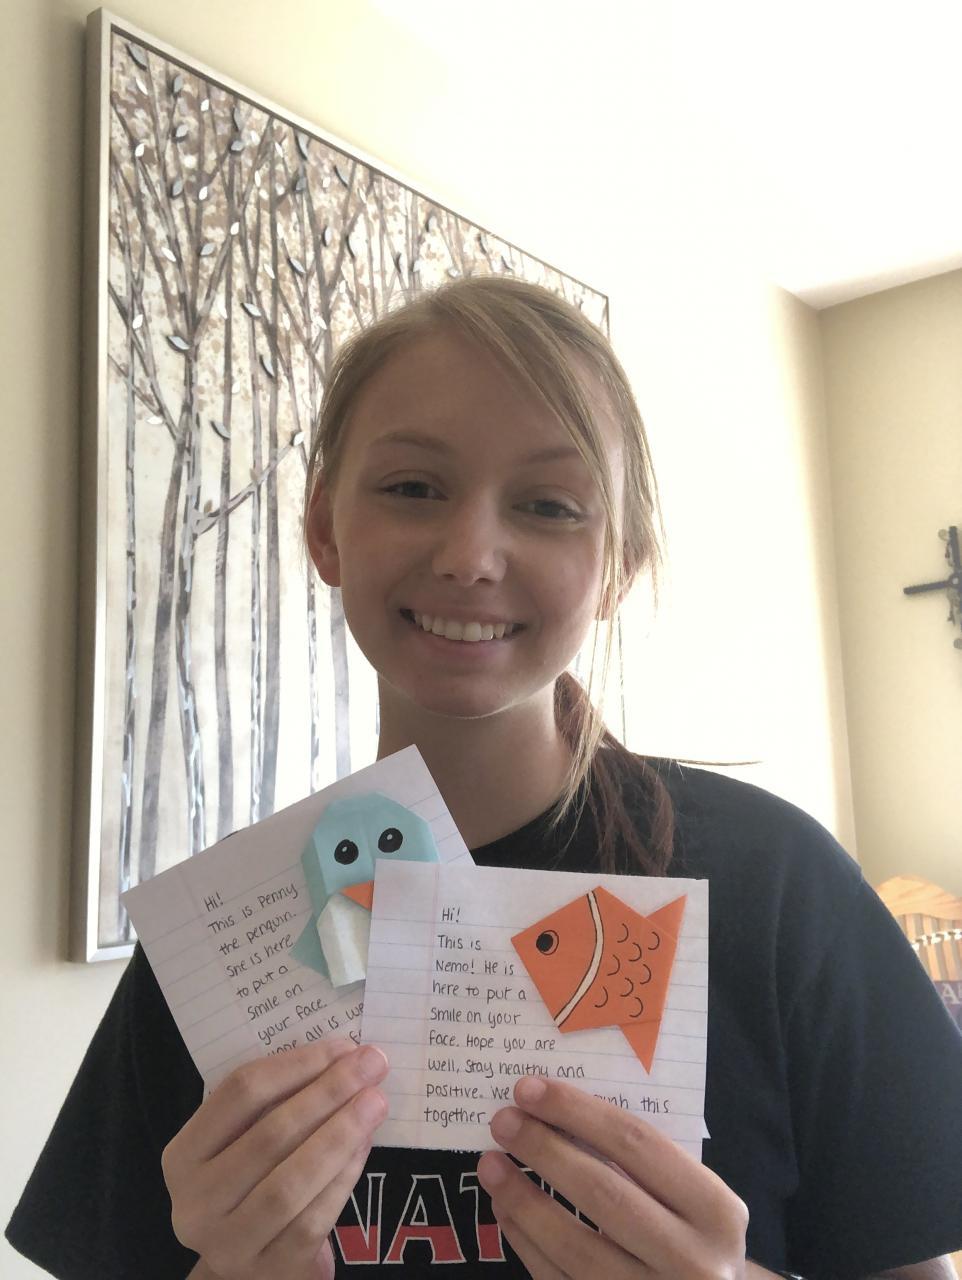 Hi!
This is Penny
the penguin.
She is here
to put a
smile on
your face.
Hope all is we
Hi!
This is
Nemo! He is
here to put a
smile on your
face. Hope you are
well, stay healthy and
positive. We this
together.
NAT
A